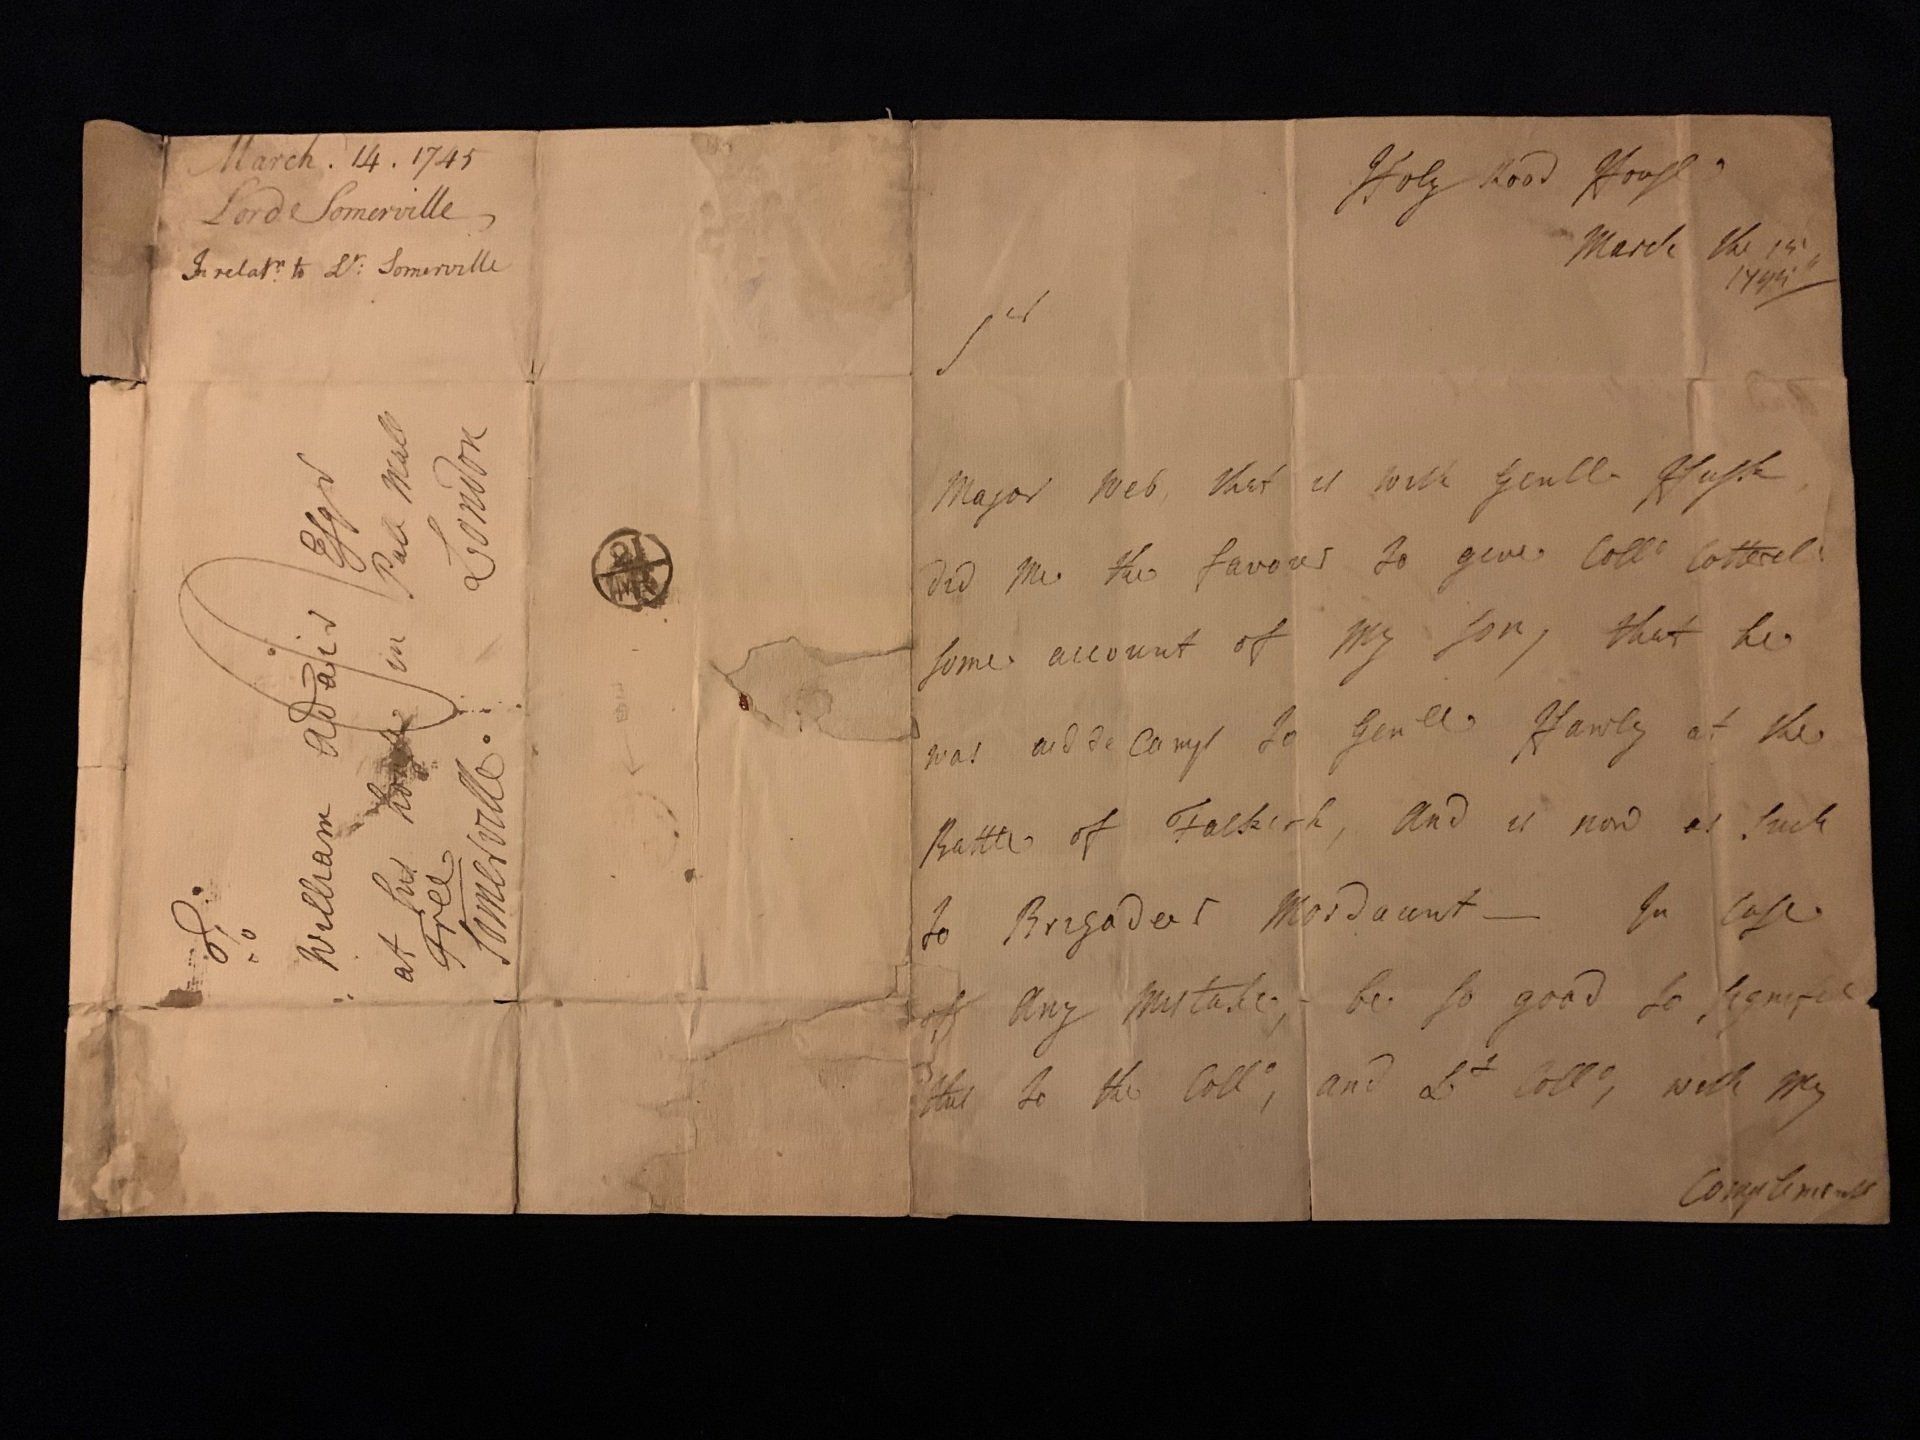 March . 14 . 1745
Lord Somerville
In relatn. to Lt: Somerville
To
William adair Esqr
at his house in Pall Mall
Free London
Somerville.
Holy Rood House
March the
1745
Sir
Major Web, that is with Genll Husk
did me the favour to give Collo Cotterel
some account of my son, that he
was aid de Camp to Genll Hawly at the
Battle of Falkirk, and is now as such
to Brigadeer Mordaunt — In case
of any mistake, be so good to signifie
this to the Collo, and Lt Collo, with my
Complements